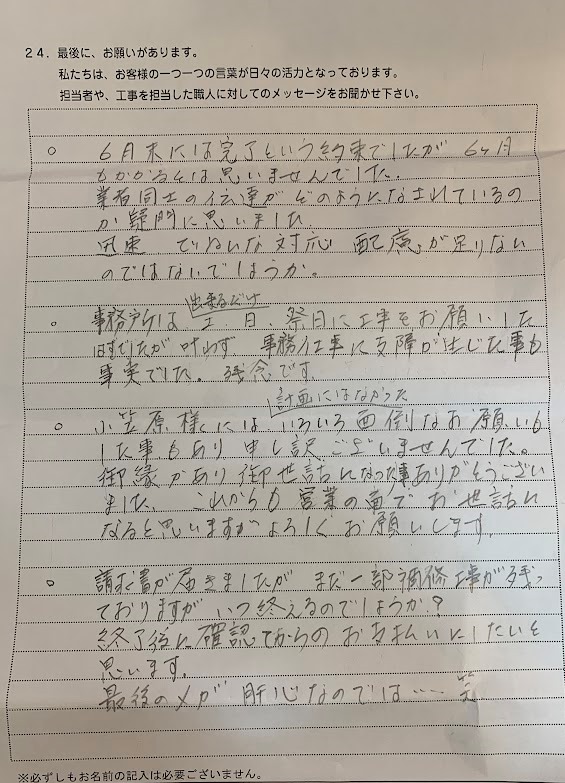 24．最後に、お願いがあります。
私たちは、お客様の一つ一つの言葉が日々の活力となっております。
担当者や、工事を担当した職人に対してのメッセージをお聞かせ下さい。
○ 6月末には完了という約束でしたが 6ヶ月
もかかるとは思いませんでした。
業者同士の伝達が どのようになされているの
か疑問に思いました
迅速 ていねいな対応 配慮が足りない
のではないでしょうか。
出来るだけ
○ 事務所は 土 日、祭日に工事をお願いした
はずでしたが叶わず 事務仕事に支障が生じた事も
事実でした。残念です。
計画にはなかった
○ 小笠原様には いろいろ面倒なお願いも
した事もあり 申し訳ございませんでした。
御縁があり御世話になった事ありがとうござい
ました これからも 営業の面で お世話に
なると思いますがよろしくお願いします。
○ 請求書が届きましたが まだ一部補修工事が残っ
ておりますが いつ終えるのでしょうか？
終了後に確認してからの お支払いにしたいと
思います。
最後の〆が 肝心なのでは……
※必ずしもお名前の記入は必要ございません。